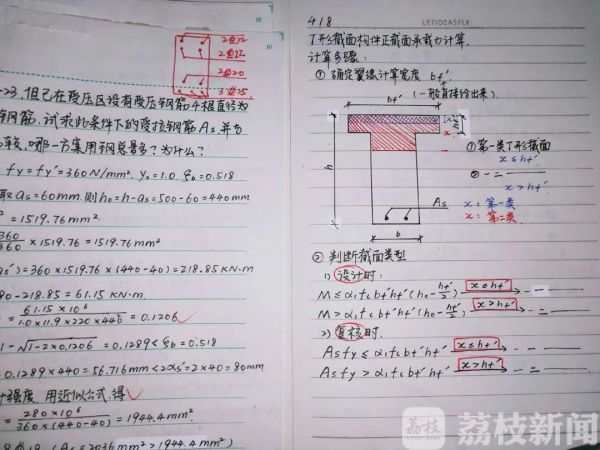 2Φ22
2Φ22
2Φ20
3Φ25
-23. 但已在受压区设有受压钢筋4根直径为
钢筋. 试求此条件下的受拉钢筋As. 并与
较, 哪一方案用钢总量多? 为什么?
fy=fy'=360N/mm². γ0=1.0 ξb=0.518
取as=60mm. 则h0=h-as=500-60=440mm
=1519.76mm²
360/360×1519.76=1519.76mm²
as')=360×1519.76×(440-40)=218.85KN·m
80-218.85=61.15KN·m
=61.15×10⁶/1.0×11.9×220×440²=0.1206
1-√1-2×0.1206=0.1289<ξb=0.518
0.1289×440=56.716mm<2as'=2×40=80mm
强度. 用近似公式. 得
=280×10⁶/360×(440-40)=1944.4mm²
(As=2036mm²>1944.4mm²)
418
LETIDEASFLY
T形截面构件正截面承载力计算.
计算步骤:
① 确定翼缘计算宽度 bf'.
(一般直接给出来)
bf'
x
x
hf'
h
As
b
①第一类T形截面
x≤hf'
②-二——
x>hf'
x: 第一类
x: 第二类
② 判断截面类型
1) 设计时:
M≤α1fcbf'hf'(h0-hf'/2) x≤hf' → -一
M>α1fcbf'hf'(h0-hf'/2) x>hf' → -二-
2) 复核时.
Asfy≤α1fcbf'hf' x≤hf' → - 一 -
Asfy>α1fcbf'hf' x>hf' → - 二 -
荔枝
荔枝新闻